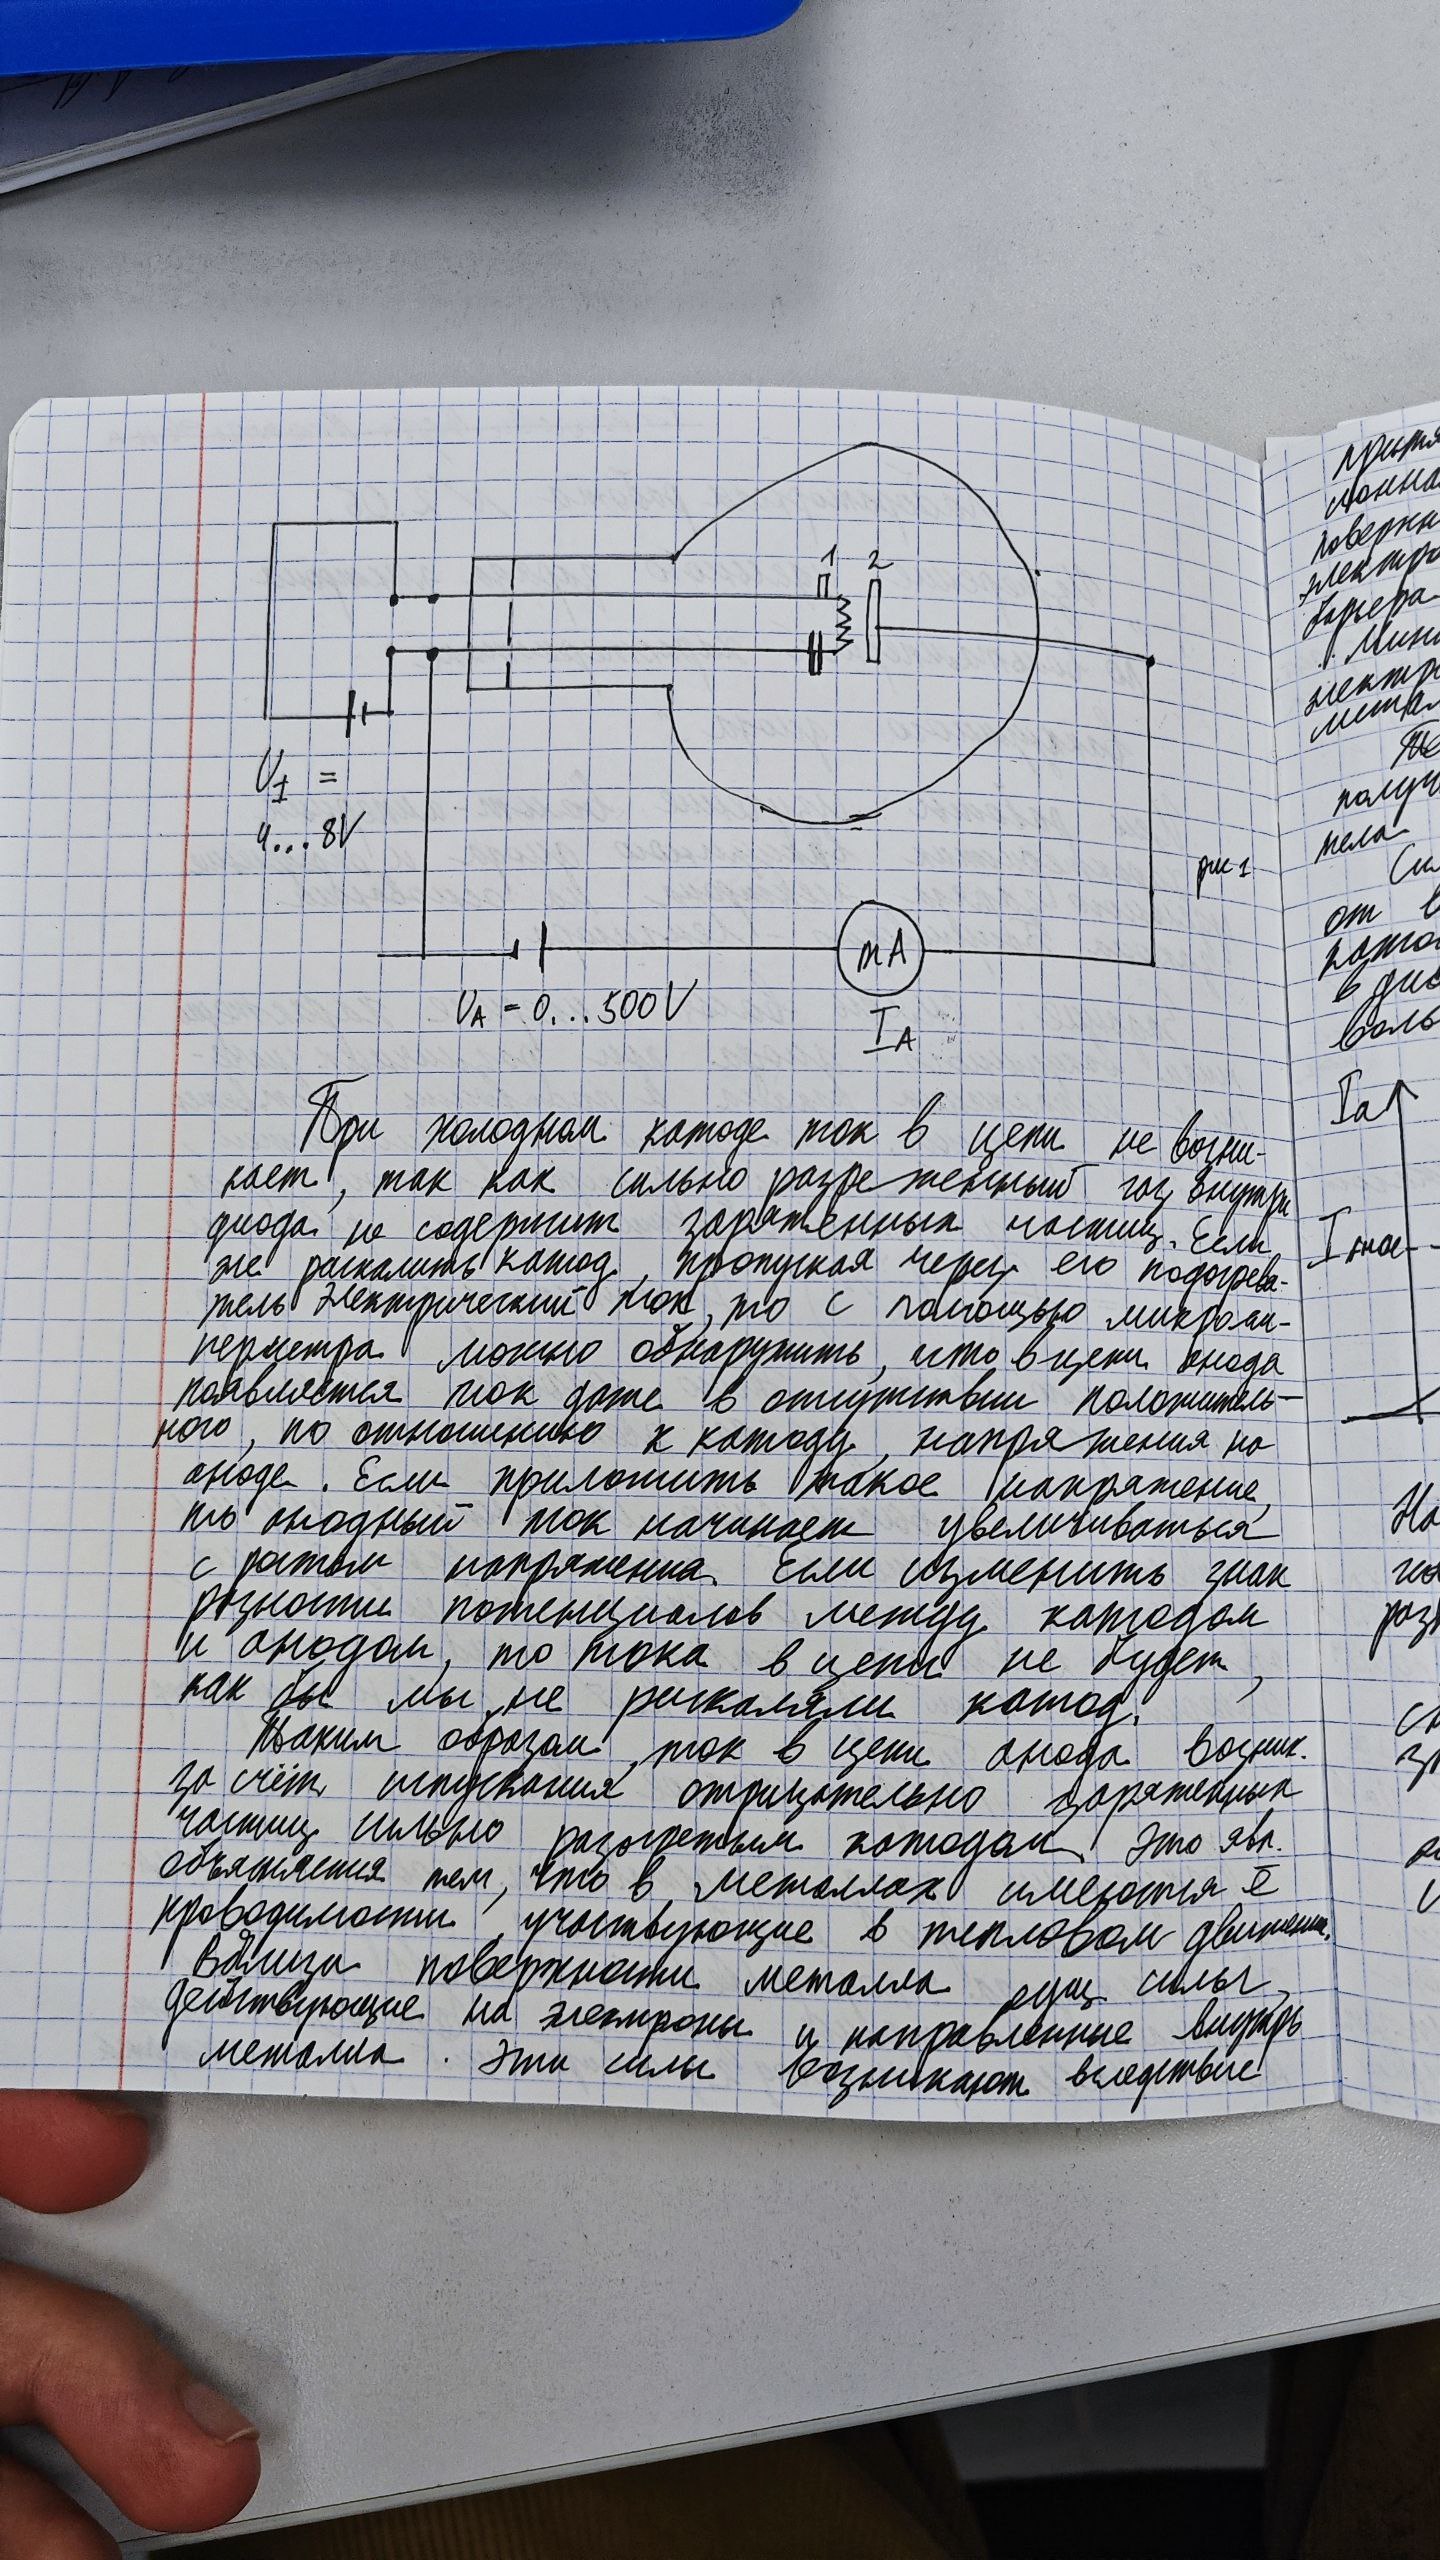 1 2
U₁ =
4...8V
рис 1
mA
U_A = 0...500V
I_A
При холодном катоде ток в цепи не возни-
кает, так как сильно разреженный газ внутри
диода не содержит заряженных частиц. Если
же раскалить катод, пропуская через его подогрева-
тель электрический ток, то с помощью микроам-
перметра можно обнаружить, что в цепи анода
появляется ток даже в отсутствии положитель-
ного, по отношению к катоду, напряжения на
аноде. Если приложить такое напряжение,
то анодный ток начинает увеличиваться
с ростом напряжения. Если изменить знак
разности потенциалов между катодом
и анодом, то тока в цепи не будет,
как бы мы не раскаляли катод.
Таким образом, ток в цепи анода возник.
за счёт испускания отрицательно заряженных
частиц сильно разогретым катодом. Это явл.
объясняется тем, что в металлах имеются ē
проводимости, участвующие в тепловом движении.
Вблизи поверхности металла сущ. силы,
действующие на электроны и направленные внутрь
металла. Эти силы возникают вследствие
притя
ионна
поверхн
электро
барьера
электро
метал
получ
тела
от в
катод
в дио
Iа
I нас
На
раз